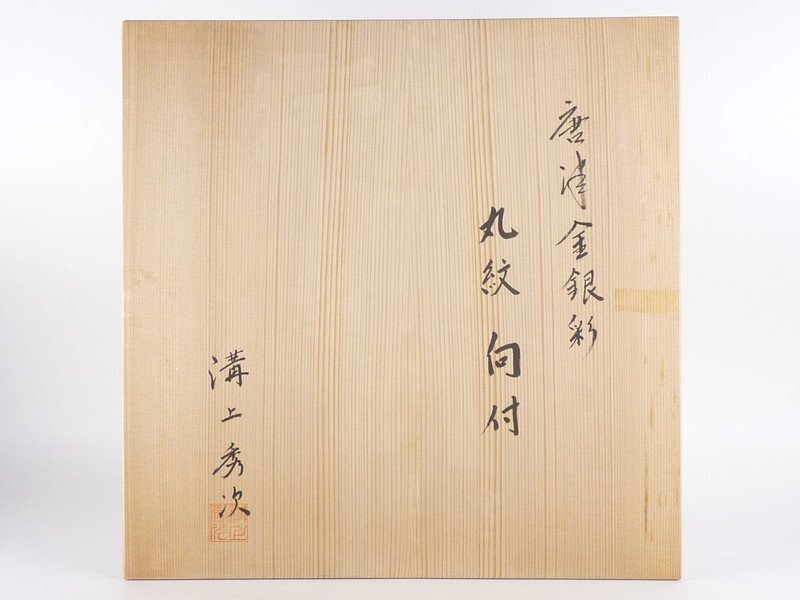 唐津金銀彩
丸紋 向付
溝上秀次